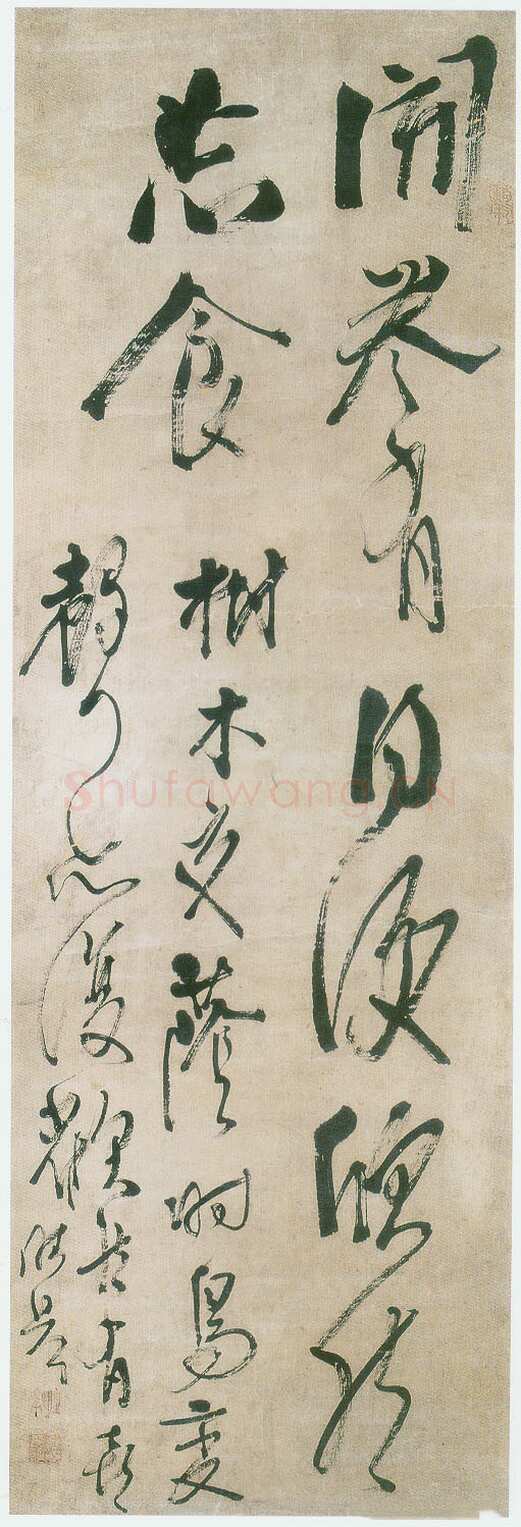 開卷有便欣然
忘食樹木交蔭時鳥變
聲亦復歡然有喜
Shufawang.CN